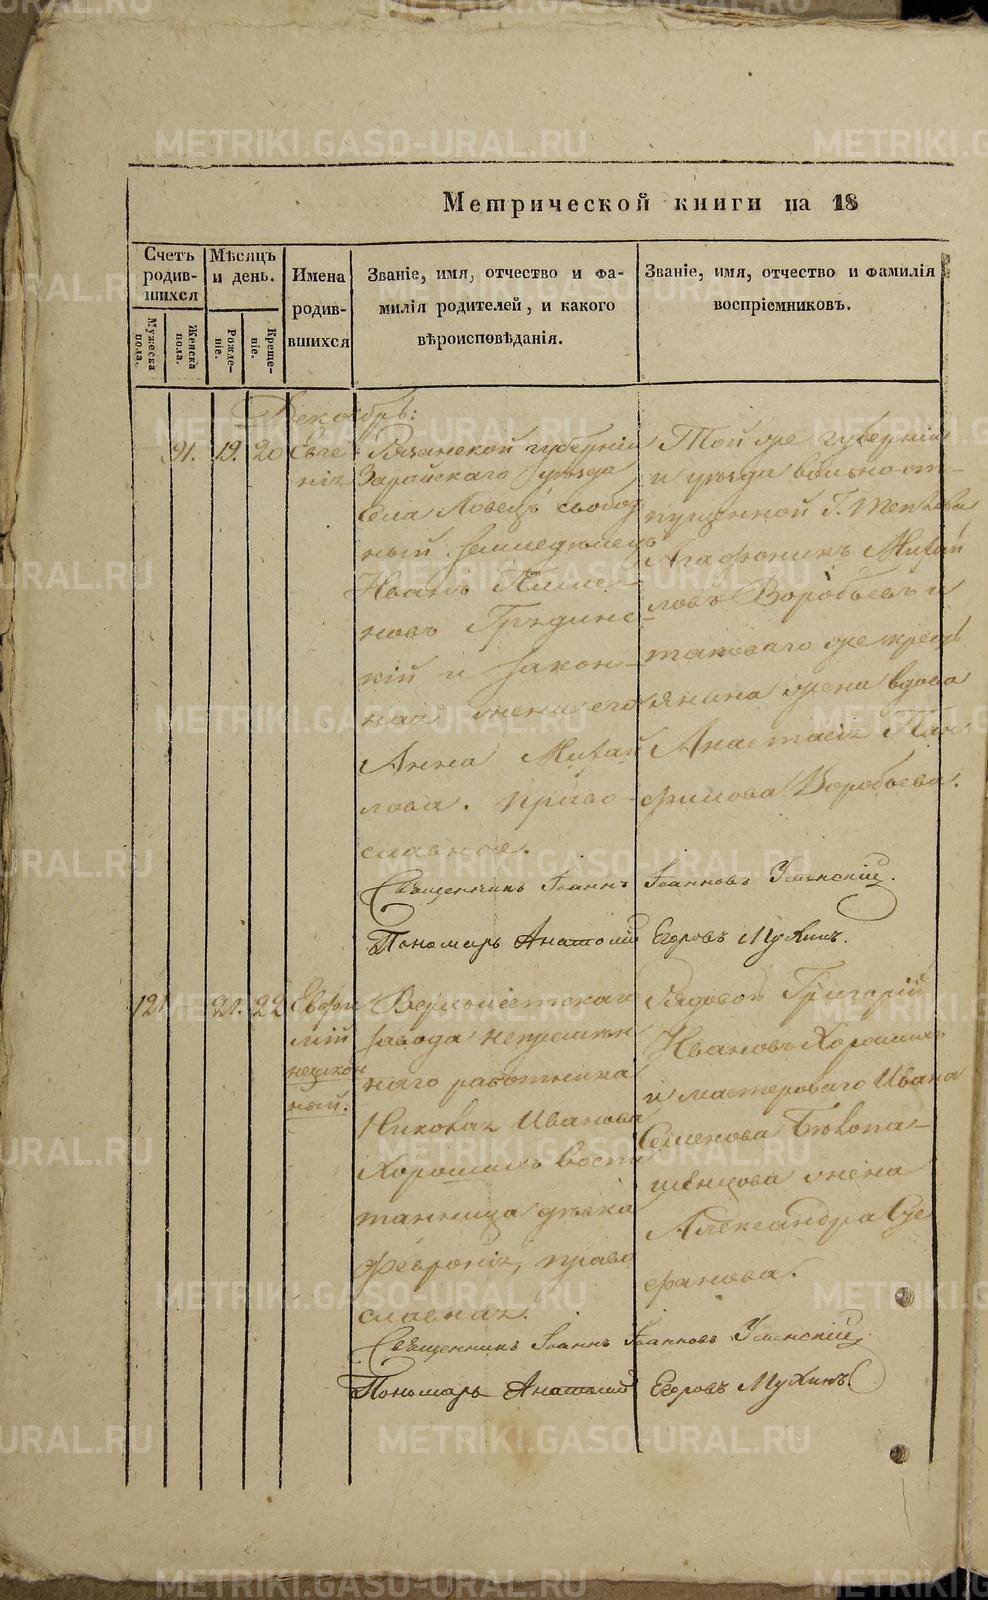 Метрической книги на 18
Счетъ родив-шихся
Мѣсяцъ и день.
Имена родив-шихся
Званіе, имя, отчество и фа-
милія родителей, и какого
вѣроисповѣданія.
Званіе, имя, отчество и фамилія
воспріемниковъ.
Мужеска пола.
Женска пола.
Рожде-ніе.
Креще-ніе.
Декабрь:
91. 19. 20
Евге
нія
Рязанской губерніи
Зарайскаго уѣзда
села Ловецъ свобод
ный землѣдѣлецъ
Иванъ
новъ
кій и закон-
ная жена его
Анна Михай
лова. право-
славное.
Той же губерніи
и уѣзда вольно-от-
пущенной Г.
Агафоникъ Михай
ловъ Воробьевъ и
таковаго же крест
янина жена вдова
Анастасія Пан
филова Воробьева.
Священникъ Іоаннъ Іоанновъ Успенскій.
Пономарь Анатолій Егоровъ Мухинъ.
121 21. 22
Евфи
мій
незкон
ный.
Верхъисетскаго
завода непремѣн
наго работника
Николая Иванова
Хорошихъ воспи
танница дѣвка
Февронія, право
славная.
Рядовой Григорій
Ивановъ Хорошихъ
и мастероваго Ивана
Семенова Бѣлопа-
шенцова жена
Александра Сте
фанова.
Священникъ Іоаннъ Іоанновъ Успенскій.
Пономарь Анатолій Егоровъ Мухинъ.
METRIKI.GASO-URAL.RU